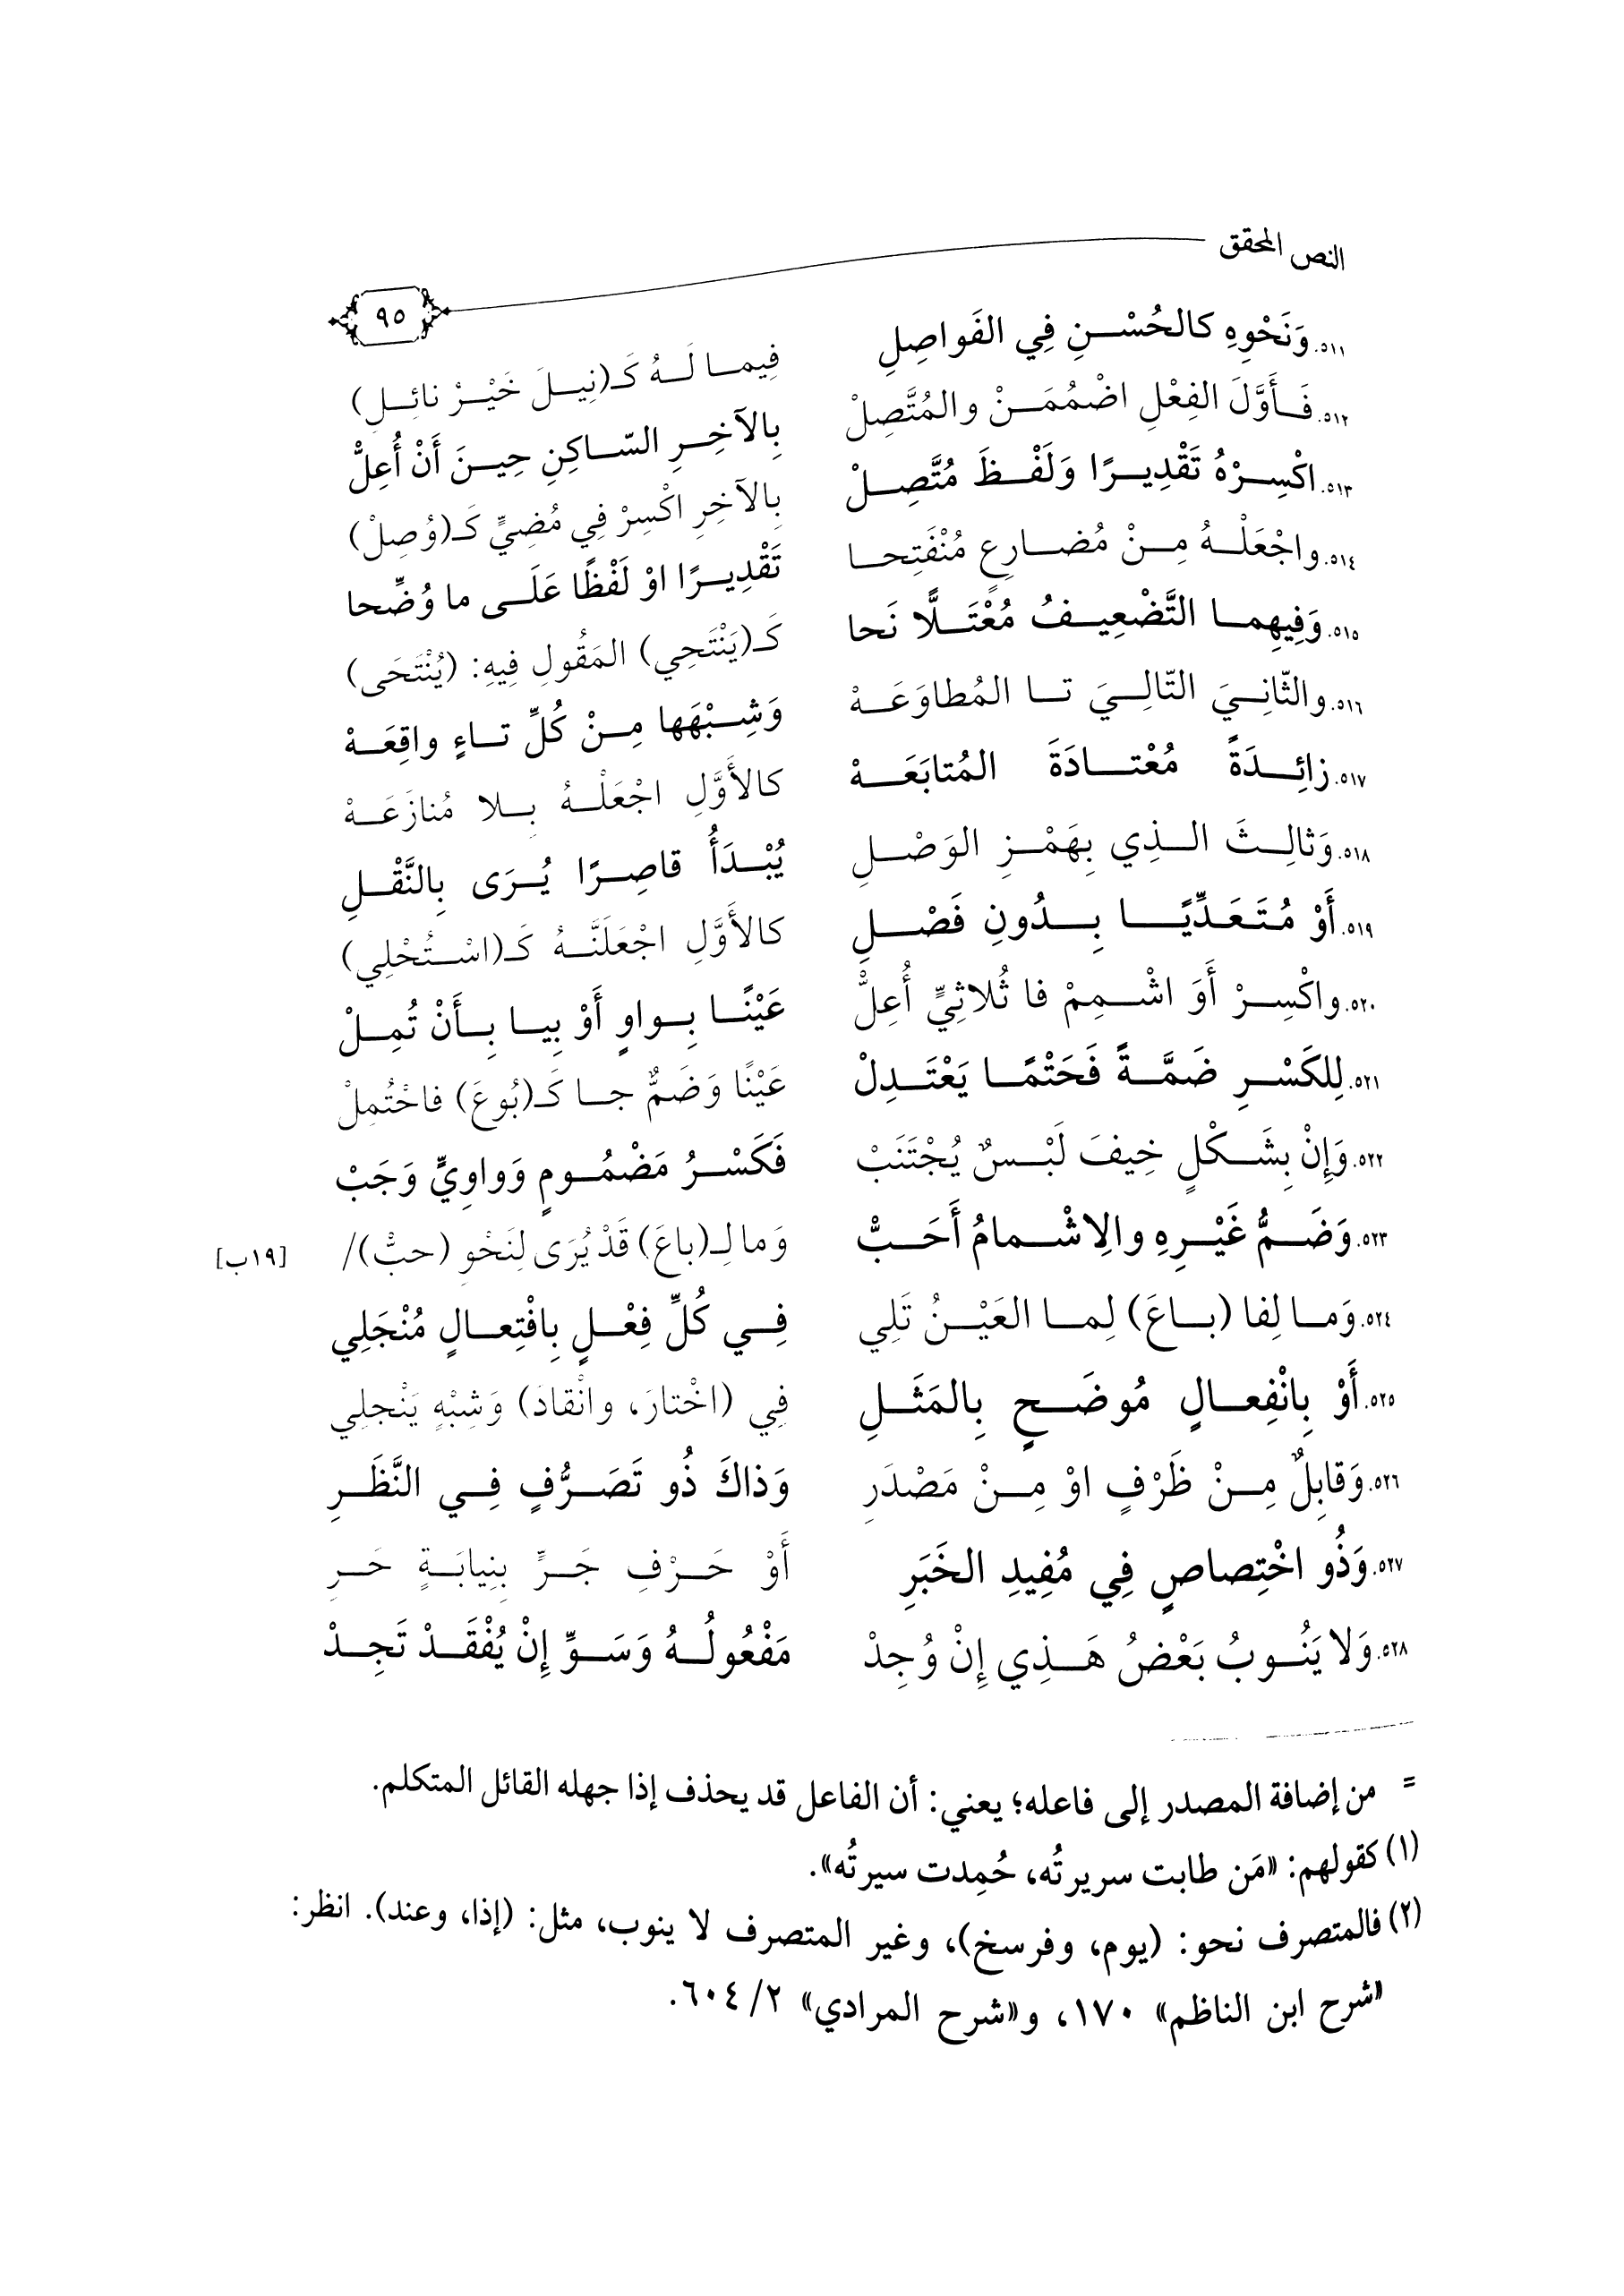 النص المحقق
٩٥
٥١١. وَنَحْوِهِ كالحُسْنِ فِي الفَواصِلِ فِيما لَهُ كَـ(نِيلَ خَيْرُ نائِلِ)
٥١٢. فَأَوَّلَ الفِعْلِ اضْمُمَنْ والمُتَّصِلْ بِالآخِرِ السّاكِنِ حِينَ أَنْ أُعِلّْ
٥١٣. اكْسِرْهُ تَقْدِيرًا وَلَفْظَ مُتَّصِلْ بِالآخِرِ اكْسِرْ فِي مُضِيٍّ كَـ(وُصِلْ)
٥١٤. واجْعَلْهُ مِنْ مُضارِعٍ مُنْفَتِحا تَقْدِيرًا اوْ لَفْظًا عَلَى ما وُضِّحا
٥١٥. وَفِيهِما التَّضْعِيفُ مُعْتَلًّا نَحا كَـ(يَنْتَحِي) المَقُولِ فِيهِ: (يُنْتَحَى)
٥١٦. والثّانِيَ التّالِيَ تا المُطاوَعَهْ وَشِبْهَها مِنْ كُلِّ تاءٍ واقِعَهْ
٥١٧. زائِدَةً مُعْتادَةَ المُتابَعَهْ كالأَوَّلِ اجْعَلْهُ بِلا مُنازَعَهْ
٥١٨. وَثالِثَ الذِي بِهَمْزِ الوَصْلِ يُبْدَأُ قاصِرًا يُرَى بِالنَّقْلِ
٥١٩. أَوْ مُتَعَدِّيًا بِدُونِ فَصْلِ كالأَوَّلِ اجْعَلَنَّهُ كَـ(اسْتُحْلِي)
٥٢٠. واكْسِرْ أَوَ اشْمِمْ فا ثُلاثِيٍّ أُعِلّْ عَيْنًا بِواوٍ أَوْ بِيا بِأَنْ تُمِلْ
٥٢١. لِلكَسْرِ ضَمَّةً فَحَتْمًا يَعْتَدِلْ عَيْنًا وَضَمٌّ جا كَـ(بُوعَ) فاحْتُمِلْ
٥٢٢. وَإِنْ بِشَكْلٍ خِيفَ لَبْسٌ يُجْتَنَبْ فَكَسْرُ مَضْمُومٍ وَواوِيٍّ وَجَبْ
٥٢٣. وَضَمُّ غَيْرِهِ والِاشْمامُ أَحَبّْ وَما لِـ(باعَ) قَدْ يُرَى لِنَحْوِ (حبّْ)/ [١٩ب]
٥٢٤. وَما لِفا (باعَ) لِما العَيْنُ تَلِي فِي كُلِّ فِعْلٍ بِافْتِعالٍ مُنْجَلِي
٥٢٥. أَوْ بِانْفِعالٍ مُوضَحٍ بِالمَثَلِ فِي (اخْتارَ، وانْقادَ) وَشِبْهٍ يَنْجلِي
٥٢٦. وَقابِلٌ مِنْ ظَرْفٍ اوْ مِنْ مَصْدَرِ وَذاكَ ذُو تَصَرُّفٍ فِي النَّظَرِ
٥٢٧. وَذُو اخْتِصاصٍ فِي مُفِيدِ الخَبَرِ أَوْ حَرْفِ جَرٍّ بِنِيابَةٍ حَرِ
٥٢٨. وَلا يَنُوبُ بَعْضُ هَذِي إِنْ وُجِدْ مَفْعُولُهُ وَسَوِّ إِنْ يُفْقَدْ تَجِدْ
= من إضافة المصدر إلى فاعله؛ يعني: أن الفاعل قد يحذف إذا جهله القائل المتكلم.
(١) كقولهم: «مَن طابت سريرتُه، حُمِدت سيرتُه».
(٢) فالمتصرف نحو: (يوم، وفرسخ)، وغير المتصرف لا ينوب، مثل: (إذا، وعند). انظر:
«شرح ابن الناظم» ١٧٠، و«شرح المرادي» ٢/ ٦٠٤.